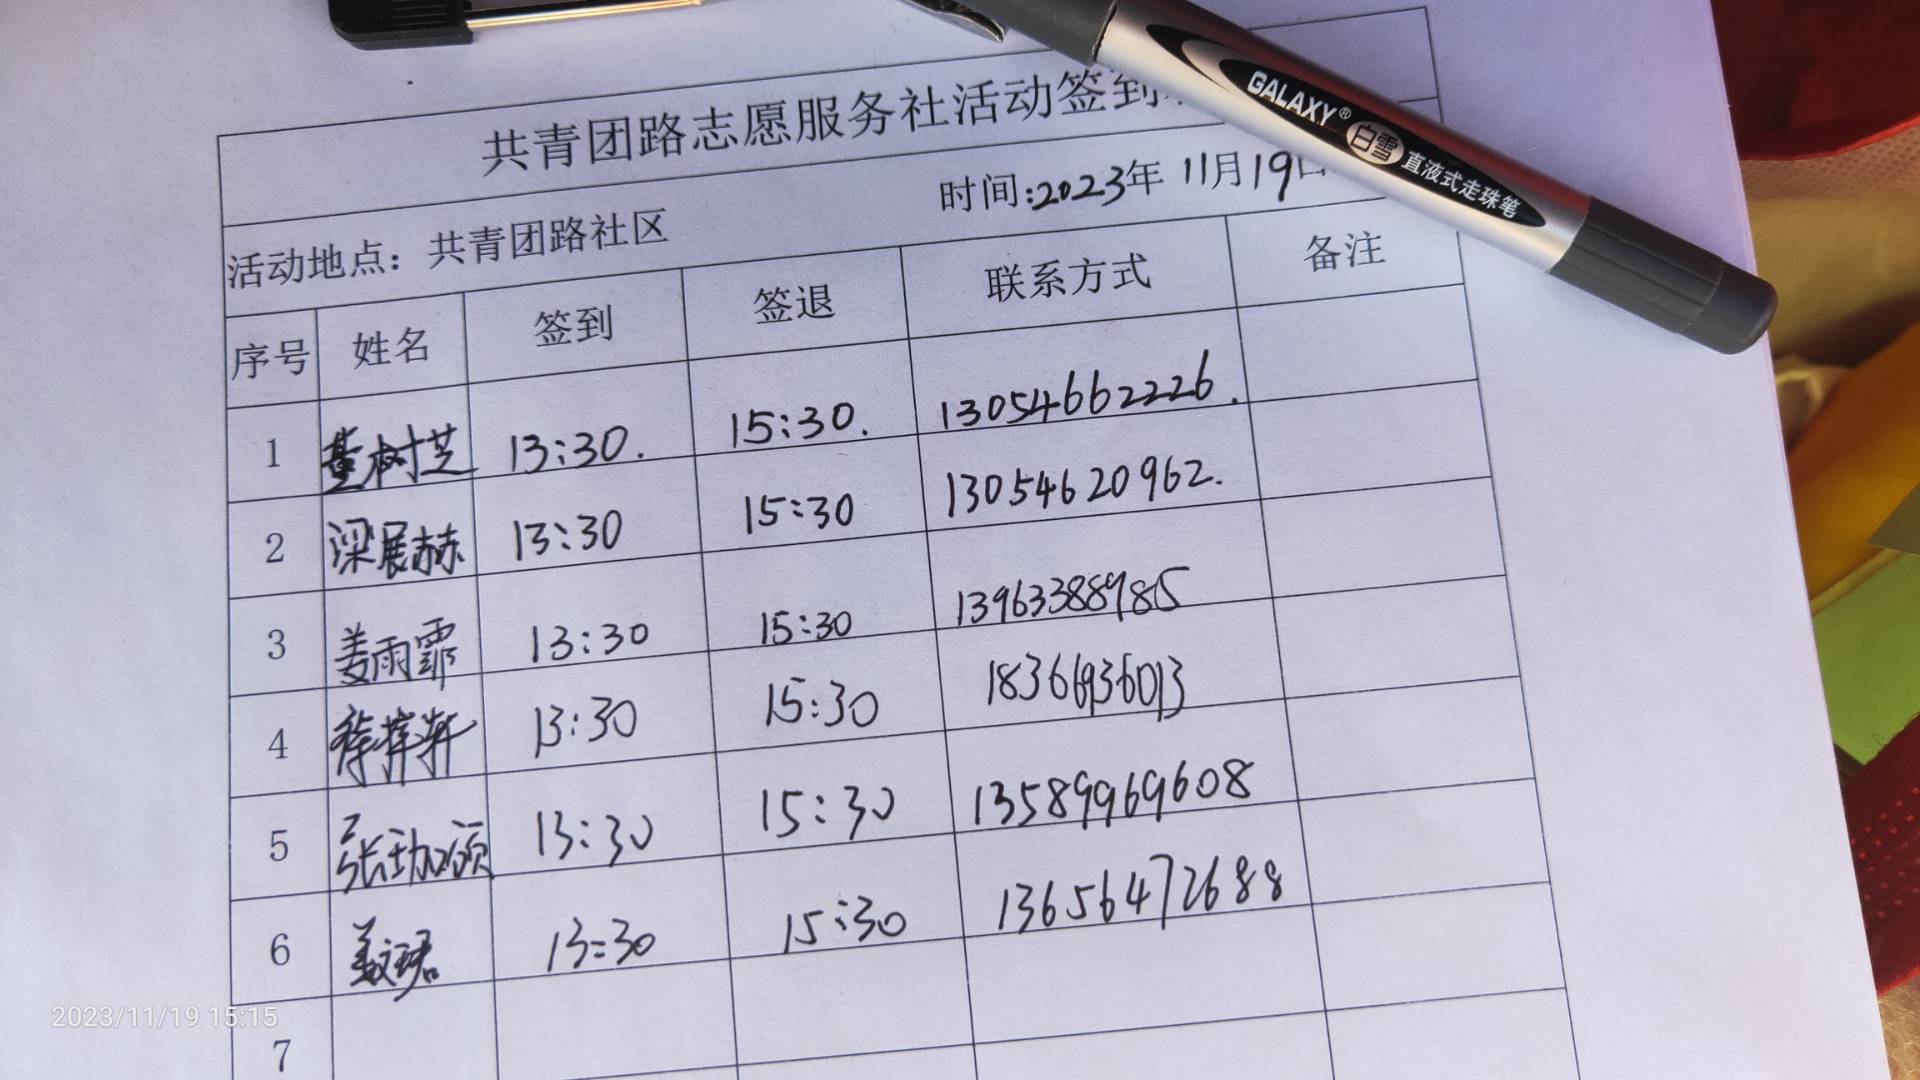 共青团路志愿服务社活动签到
活动地点：共青团路社区 时间:2023年 11月19日
序号 姓名 签到 签退 联系方式 备注
1 董树芝 13:30. 15:30. 13054662226.
2 梁展赫 13:30 15:30 13054620962.
3 姜雨霏 13:30 15:30 13963388985
4 13:30 15:30 18366936013
5 张劲颂 13:30 15:30 13589969608
6 13:30 15:30 13656472688
7
GALAXY® 白雪 直液式走珠笔
2023/11/19 15:15